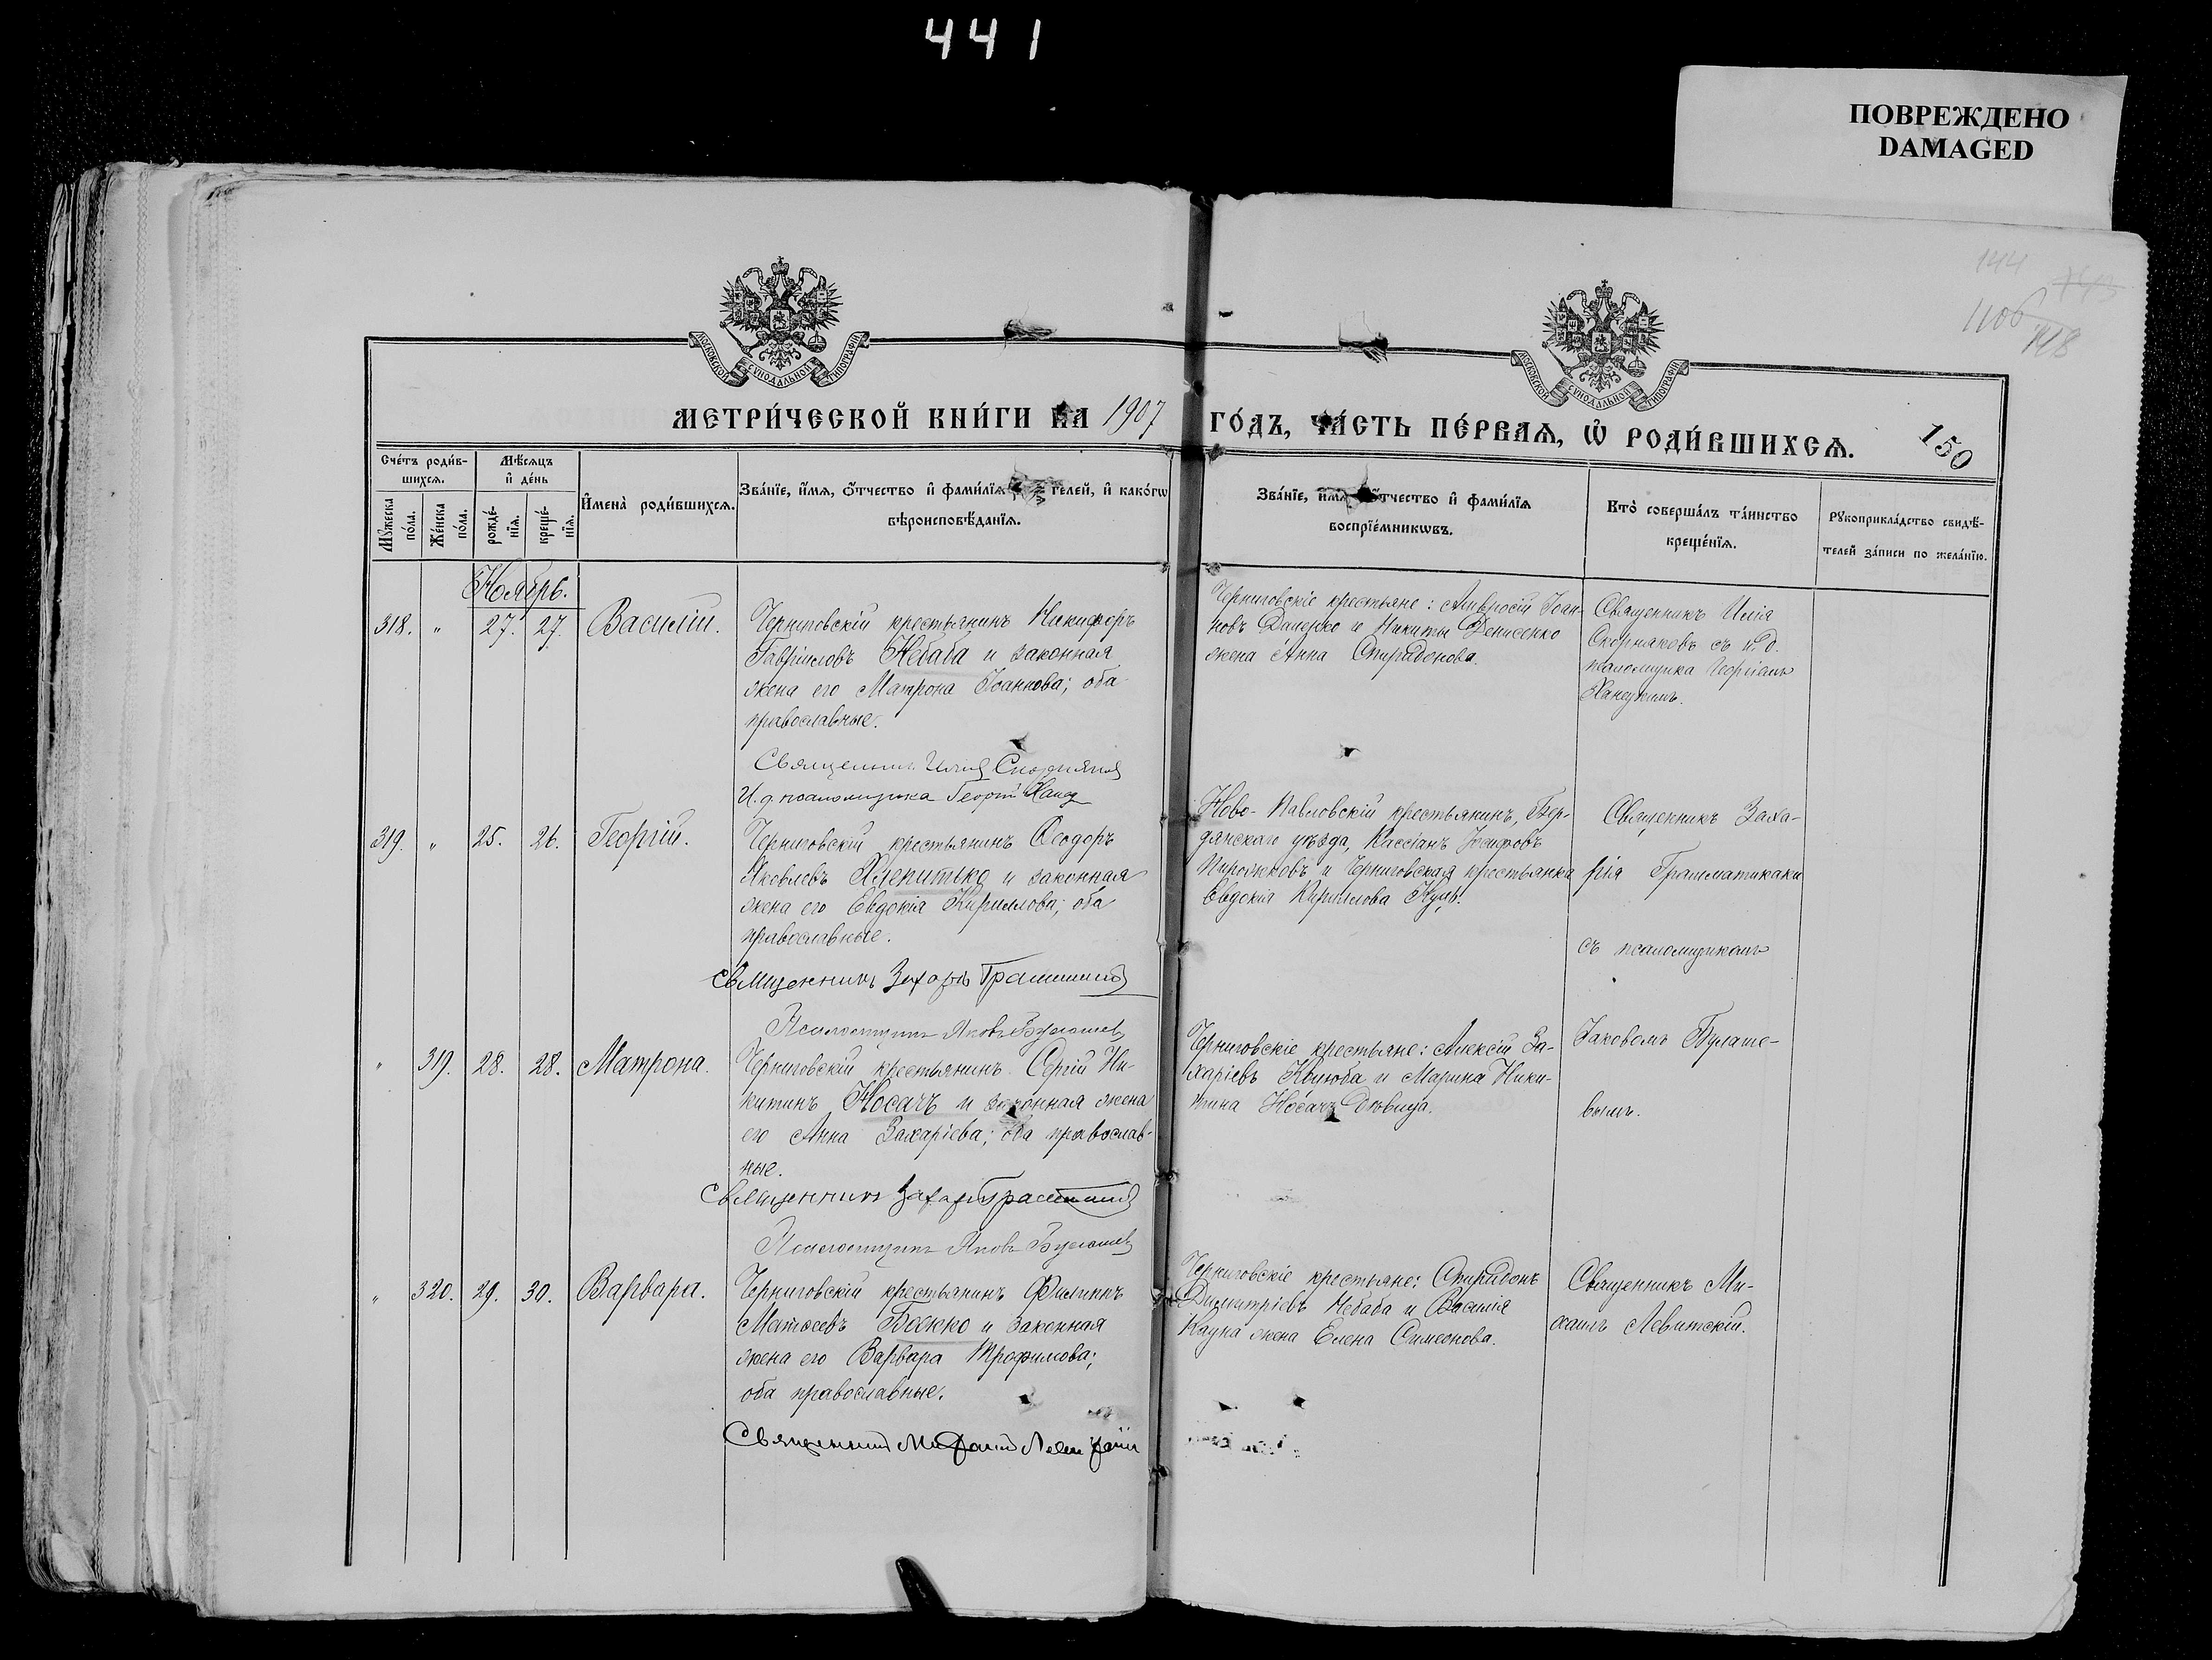 441
ПОВРЕЖДЕНО
DAMAGED
144
1106
148
МОСКОВСКОЙ СѴНОДАЛЬНОЙ ТИПОГРАФІИ
МОСКОВСКОЙ СѴНОДАЛЬНОЙ ТИПОГРАФІИ
МЕТРИ́ЧЕСКОЙ КНИ́ГИ НА 1907 ГО́ДЪ, ЧА́СТЬ ПЕ́РВАѦ, Ѡ҆ РОДИ́ВШИХСѦ.
150
Сче́тъ роди́в-
шихсѧ.
Мѣ́сѧцъ
и҆ де́нь
Мꙋ́жеска по́ла.
Же́нска по́ла.
рожде́-
нїѧ.
креще́-
нїѧ.
И҆мена̀ роди́вшихсѧ.
Зва́нїе, и҆́мѧ, ѻ҆́тчество и҆ фами́лїѧ роди́телей, и҆ како́гѡ
вѣроисповѣ́данїѧ.
Зва́нїе, и҆́мѧ, ѻ҆́тчество и҆ фами́лїѧ
воспрїе́мникѡвъ.
Кто̀ соверша́лъ та́инство
креще́нїѧ.
Рꙋкоприкла́дство свидѣ́-
телей за́писи по жела́нїю.
Ноябрь.
318. " 27. 27. Василій.
Черниговскій крестьянинъ Никифоръ
Гавріиловъ Небаба и законная
жена его Матрона Іоаннова; оба
православные.
Священникъ Илія
И. д. псаломщика Георгій
Черниговскіе крестьяне: Амвросій Іоан-
новъ Диденко и Никиты Денисенко
жена Анна Спиридонова.
Священникъ Илія
Скорняковъ съ и. д.
псаломщика Георгіемъ
319. " 25. 26. Георгій.
Черниговскій крестьянинъ Ѳеодоръ
Яковлевъ и законная
жена его Евдокія Кириллова; оба
православные.
Священникъ
Псаломщикъ Яковъ
Ново-Павловскій крестьянинъ, Бер-
дянскаго уѣзда, Кассіанъ Іосифовъ
Пирожковъ и Черниговская крестьянка
Евдокія Кириллова Куцъ.
Священникъ Заха-
рія Грамматикаки
съ псаломщикомъ
Іаковомъ Булаше-
вымъ.
" 319. 28. 28. Матрона.
Черниговскій крестьянинъ Сергій Ни-
китинъ Носачъ и законная жена
его Анна Захаріева; оба православ-
ные.
Священникъ
Псаломщикъ Яковъ
Черниговскіе крестьяне: Алексій За-
харіевъ и Марина Ники-
тина Носачъ дѣвица.
" 320. 29. 30. Варвара.
Черниговскій крестьянинъ Филиппъ
Матѳеевъ Божко и законная
жена его Варвара Трофимова;
оба православные.
Священникъ Михаилъ Левитскій
Черниговскіе крестьяне: Спиридонъ
Димитріевъ Небаба и Василія
жена Елена Симеонова.
Священникъ Ми-
хаилъ Левитскій.